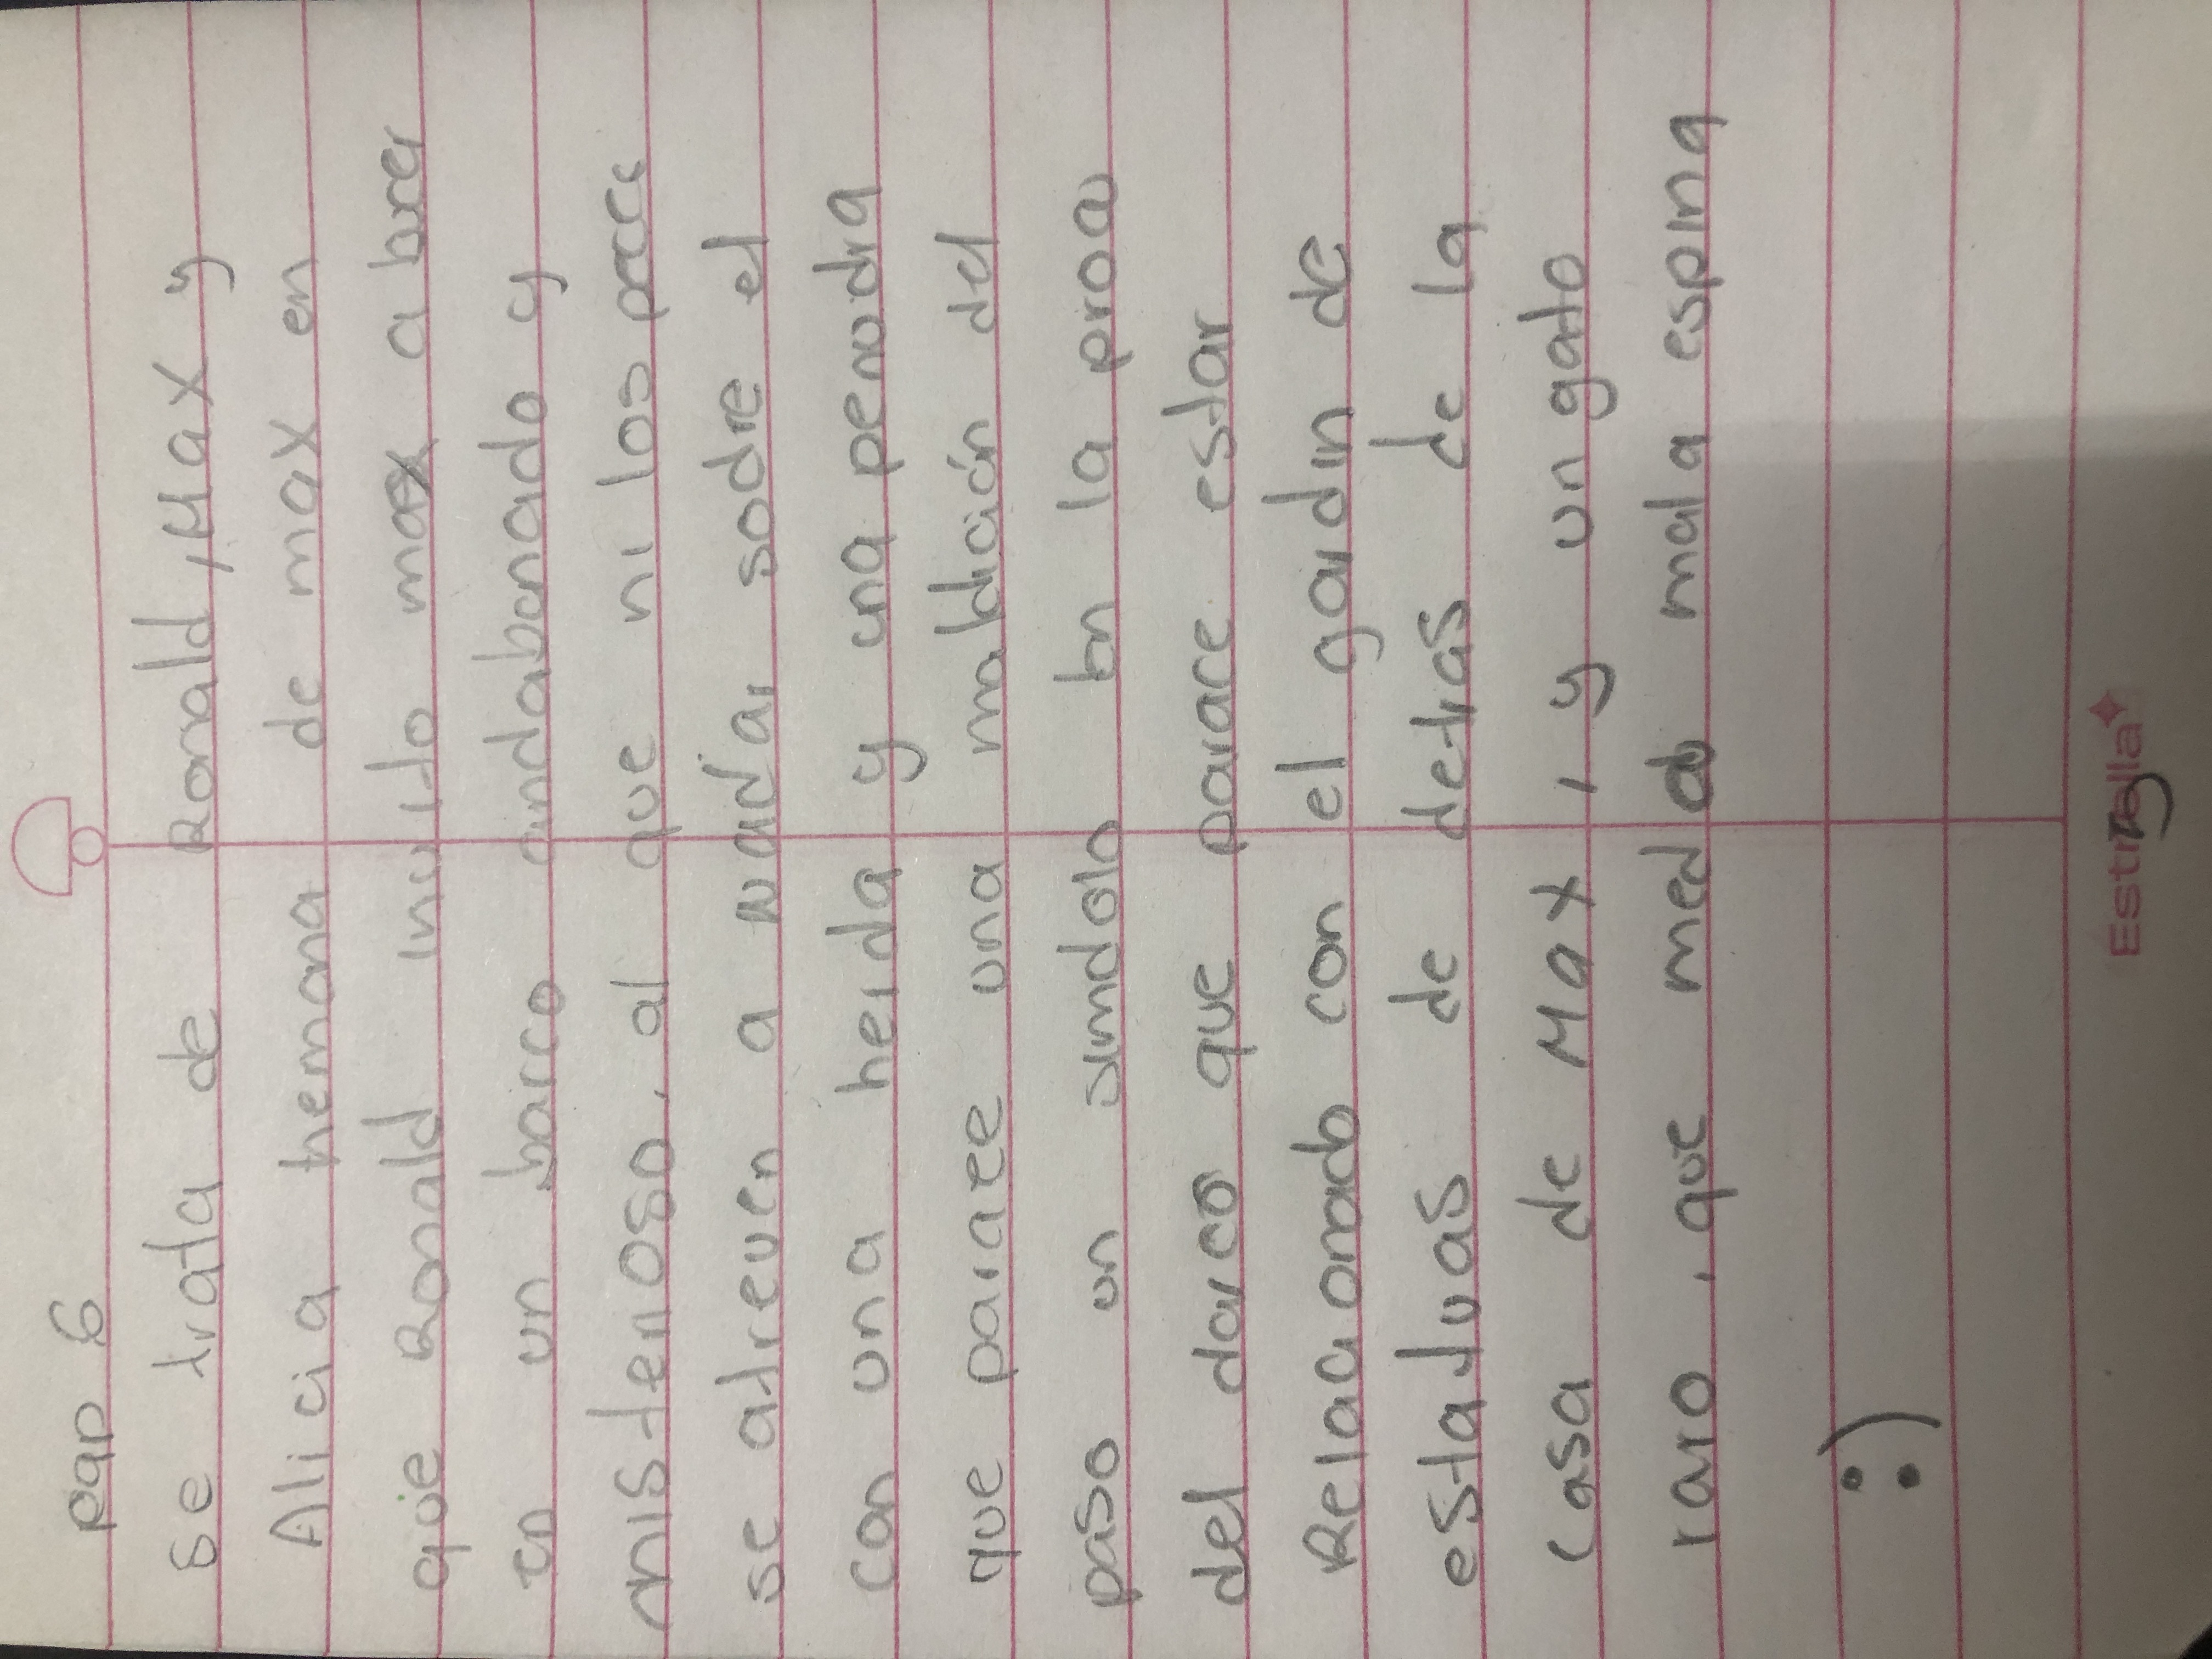 pap 6
se trata de Ronald, Max y
Alicia hemana de max en
que Ronald invito max a bucer
en un barco andabanado y
misterioso, al que ni los peces
se atreven a nadar sodre el
con una heida y una penodra
que pararee una maldición del
paso un simdolo en la proa
del darco que parare estar
Relacionado con el gardin de
estatuas de detras de la
casa de Max, y un gato
raro, que med a mala espina
:)
Estrella